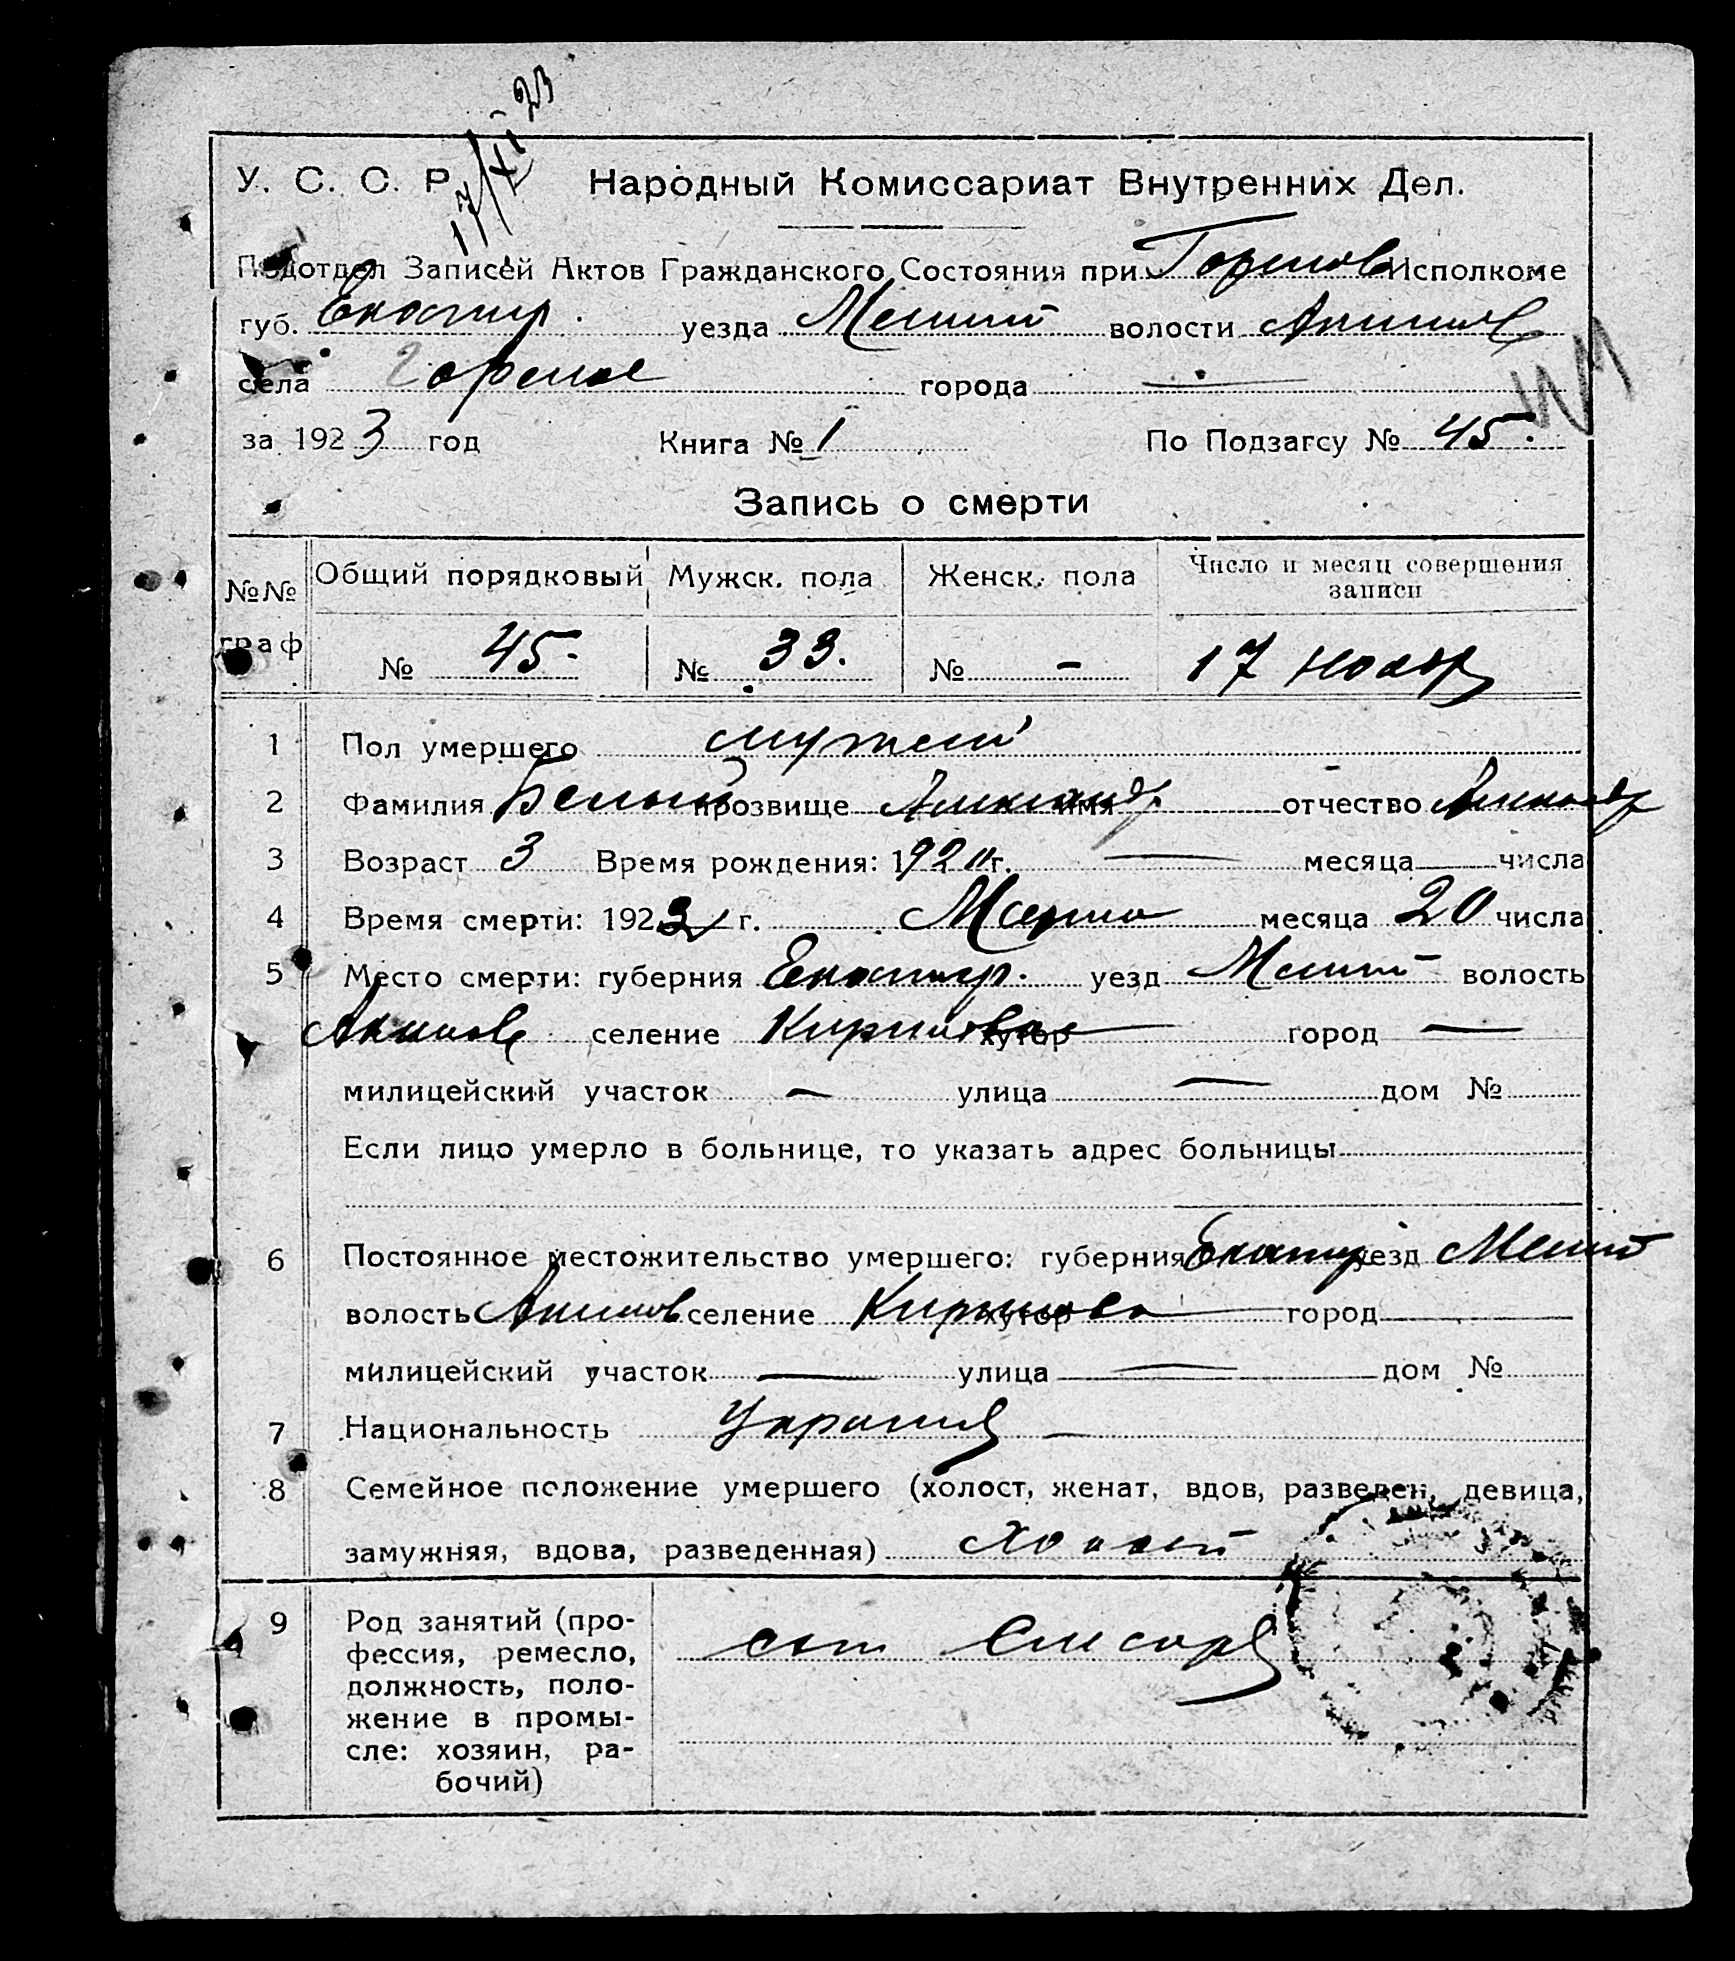 17/XI 23
У. С. С. Р. Народный Комиссариат Внутренних Дел.
Подотдел Записей Актов Гражданского Состояния при Исполкоме
губ. Екатер. уезда волости
села города —
за 1923 год Книга № 1 По Подзагсу № 45.
Запись о смерти
№№ граф Общий порядковый Мужск. пола Женск. пола Число и месяц совершения записи
№ 45. № 33. № - 17 ноябр
1 Пол умершего мужской
2 Фамилия Белый прозвище Александр имя отчество Александр
3 Возраст 3 Время рождения: 1920 г. — месяца — числа
4 Время смерти: 1923 г. месяца 20 числа
5 Место смерти: губерния Екатер. уезд волость
Акимов селение хутор город —
милицейский участок — улица — дом №
Если лицо умерло в больнице, то указать адрес больницы
6 Постоянное местожительство умершего: губерния Екатер уезд
волость Акимов селение хутор город —
милицейский участок — улица — дом №
7 Национальность Украин
8 Семейное положение умершего (холост, женат, вдов, разведен, девица,
замужняя, вдова, разведенная) холост
9 Род занятий (про-
фессия, ремесло,
должность, поло-
жение в промы-
сле: хозяин, ра-
бочий)
сын Слесаря